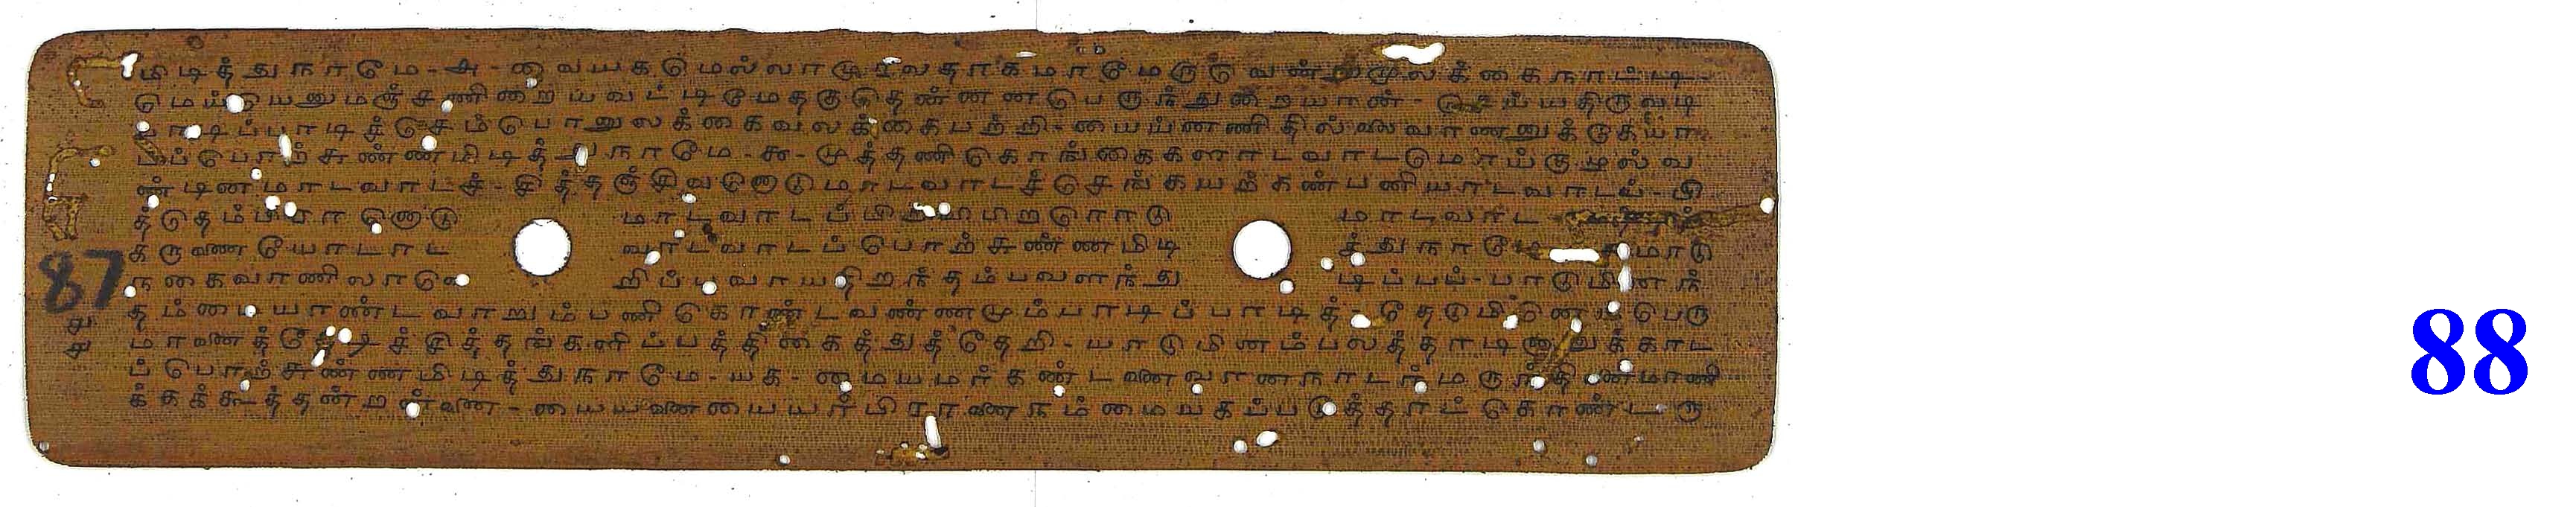 மிடித்துநாமே-அ-வையகமெல்லாமுரலதாகமாமேருவென்னுமுலக்கைநாட்டி-
மெய்யெனுமஞ்சணிறையவட்டிமேதகுதென்னன்பெருந்துறையான்-செய்யதிருவடி
பாடிப்பாடிச்செம்பொனுலக்கைவலக்கைபற்றி-யையனணிதில்லைவாணனுக்கேயா
டப்பொற்சுண்ணமிடித்துநாமே-௯-முத்தணிகொங்கைகளாடவாடமொய்குழல்வ
ண்டினமாடவாடச்-சித்தஞ்சிவனொடுமாடவாடச்செங்கயற்கண்பனியாடவாடப்-பி
த்தெம்பிரானொடு மாடவாடப்பிறவிபிறரொடு மாடவாட
கருணையோடாட வாடவாடப்பொற்சுண்ணமிடி த்துநாமே மாடு
நகைவாணிலாவெ றிப்பவாய்திறந்தம்பவளந்து டிப்பப்-பாடுமின்னந்
தம்மையாண்டவாறும்பணிகொண்டவண்ணமும்பாடிப்பாடித்-தேடுமின்னெம்பெரு
மானைத்தேடிச்சித்தங்களிப்பத்திகைத்துத்தேறி-யாடுமினம்பலத்தாடினானுக்காட
ப்பொற்சுண்ணமிடித்துநாமே-யக-மையமர்கண்டனைவானநாடர்மருந்தினைமாணி
க்கக்கூத்தன்றன்னை-யையனையையர்பிரானைநம்மையகப்படுத்தாட்கொண்டரு
87
88